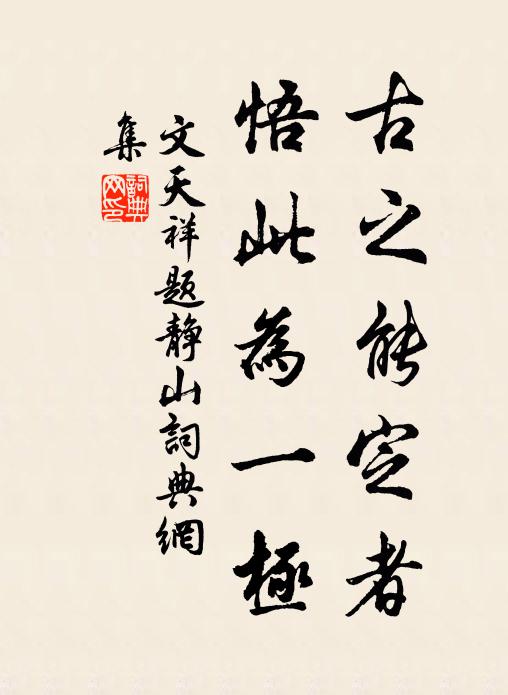 古之能定者
悟此為一極
文天祥題静山詞典網
集
詞典網印